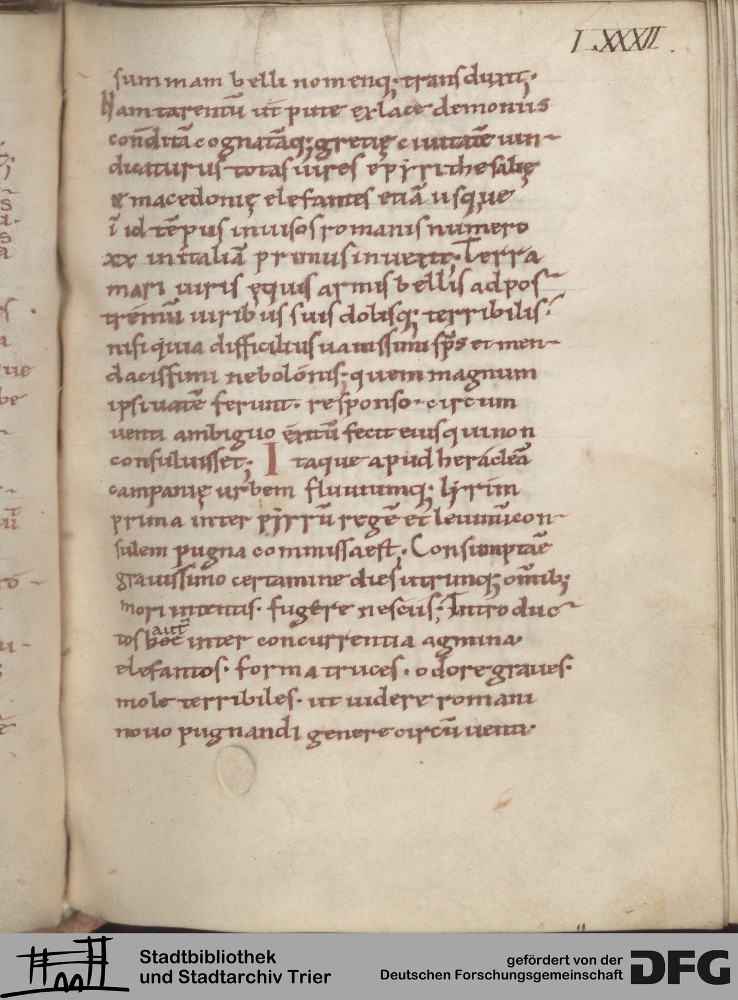 LXXXII.
summam belli nomenq; transduxit;
Nam tarentū ut pute ex lacedemoniis
conditā cognatāq; gretię ciuitatē uin-
dicaturus totas uires epyri thesalię
& macedonię elefantes etiā usque
ī id tēpus inuisos romanis numero
xx in italiā primus inuexit; Terra
mari uiris ęquis armis bellis ad pos-
tremū uiribus suis dolisq; terribilis.
nisi quia difficilius uanissimi sps et men-
dacissimi nebolonis. quem magnum
ipsi uatē ferunt. responso. circum
uenti ambiguo exitū fecit eius qui non
consuluisset; Itaque apud heracleā
campanię urbem fluuiumq; lyrim
prima inter pyrrū regē et leuinū con-
sulem pugna commissa est. Consumptūē
grauissimo certamine dies utrimq; omīb;
mori intentis. fugere nesciis; Introduc-
tos autē hoc inter concurrentia agmina
elefantos. forma truces. odore graues.
mole terribiles. ut uidere romani
nouo pugnandi genere circū uenti.
Stadtbibliothek
und Stadtarchiv Trier
gefördert von der
Deutschen Forschungsgemeinschaft
DFG